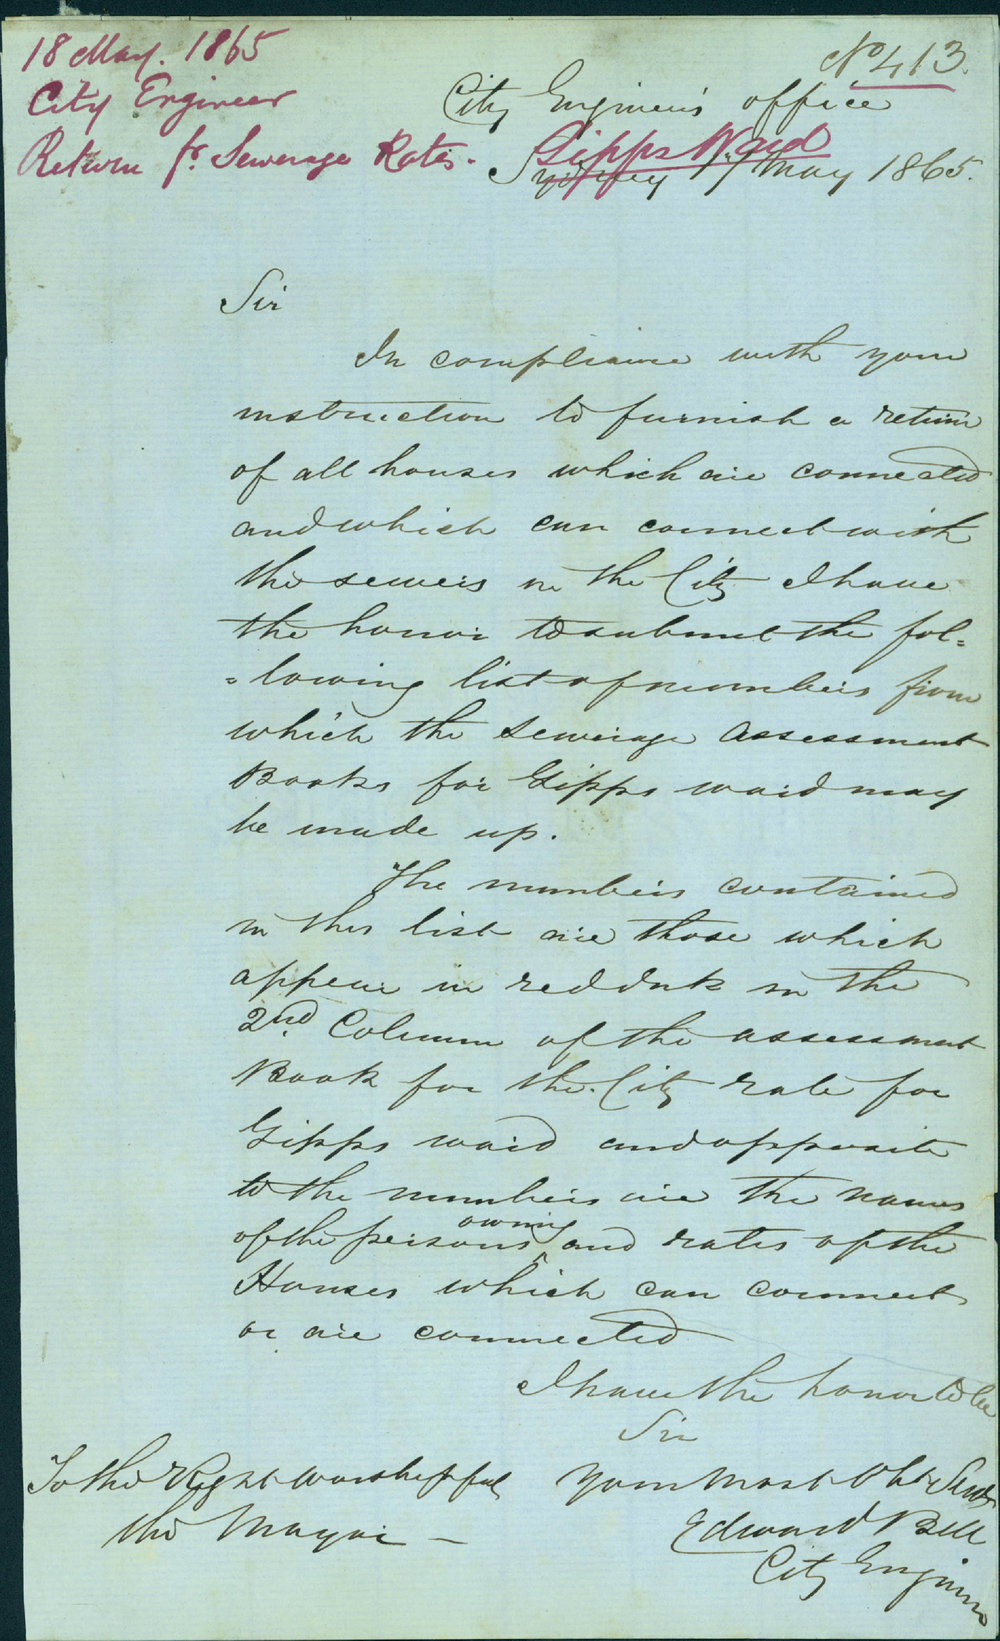 18 May. 1865
City Engineer
Return fr. Sewerage Rates.
No 413.
City Engineer's office
Gipps Ward
Sydney 17 May 1865.
Sir
In compliance with your
instruction to furnish a return
of all houses which are connected
and which can connect with
the sewers in the City I have
the honor to submit the fol=
=lowing list of numbers from
which the Sewerage Assessment
Books for Gipps ward may
be made up.
The numbers contained
in this list are those which
appear in red Ink in the
2nd Column of the assessment
Book for the City rate for
Gipps ward and opposite
to the numbers are the names
owning
of the persons ^ and rates of the
Houses which can connect
or are connected
I have the honor to be
Sir
Your Most Obt Servt
Edward Bell
City Engineer
To the Right Worshipful
the Mayor —